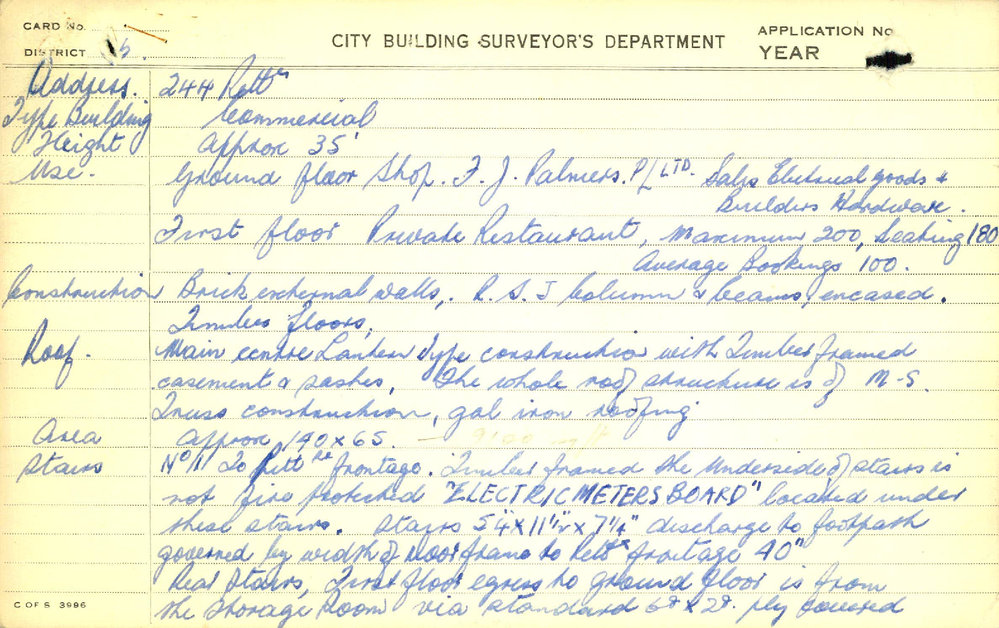 CARD No.
DISTRICT 6.
CITY BUILDING SURVEYOR'S DEPARTMENT
APPLICATION No
YEAR
Address. 244 Pitt
Type Building Commercial
Height Approx 35'
Use. Ground floor Shop. F. J. Palmers. P/L LTD. Sales Electrical goods &
Builders Hardware.
First floor Private Restaurant, Maximum 200, Seating 180
Average Bookings 100.
Construction Brick external walls, R.S.J Column & beams, encased.
Timber floors,
Roof. Main centre Lantern type construction with Timber framed
casement & sashes, The whole roof structure is of M-S.
Truss construction, gal iron roofing
Area approx 140 x 65.
Stairs No 1 To Pitt frontage. Timber framed the underside of stairs is
not fire protected "ELECTRIC METERS BOARD" located under
these stairs. Stairs 54" x 11½" x 7¼" discharge to footpath
governed by width of door frame to Pitt frontage 40"
Rear Stairs, First floor egress to ground floor is from
the storage Room via standard ply covered
C OF S 3986